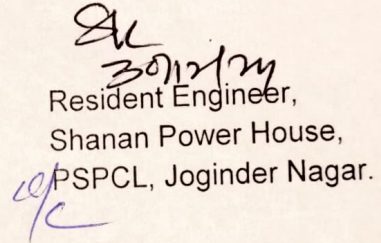 Resident Engineer,
Shanan Power House,
PSPCL, Joginder Nagar.